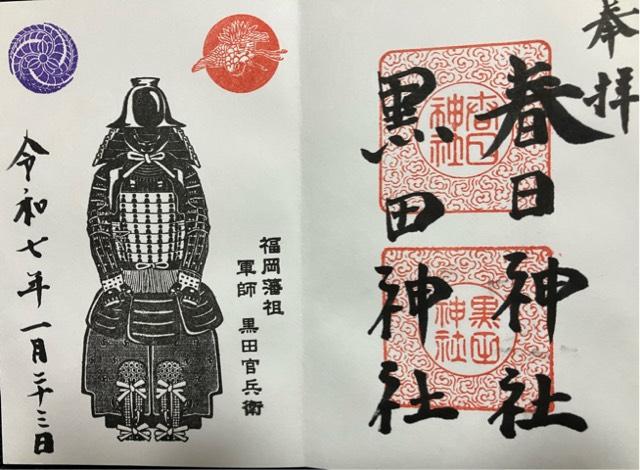 奉拝
春日神社
黒田神社
春日神社
黒田神社
福岡藩祖
軍師 黒田官兵衛
令和七年一月二十三日